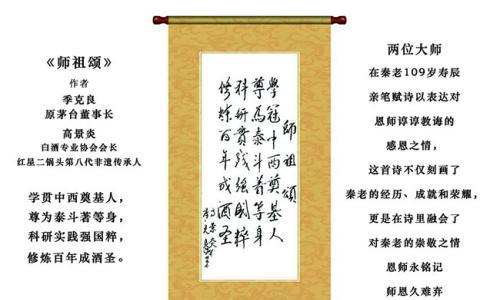 《师祖颂》
作者
季克良
原茅台董事长
高景炎
白酒专业协会会长
红星二锅头第八代非遗传承人
学贯中西奠基人，
尊为泰斗著等身，
科研实践强国粹，
修炼百年成酒圣。
師祖頌
學冠中西奠基人
尊爲泰斗著等身
科研實践強國粹
修煉百年成酒圣
两位大师
在秦老109岁寿辰
亲笔赋诗以表达对
恩师谆谆教诲的
感恩之情，
这首诗不仅刻画了
秦老的经历、成就和荣耀，
更是在诗里融会了
对秦老的崇敬之情
恩师永铭记
师恩久难弃